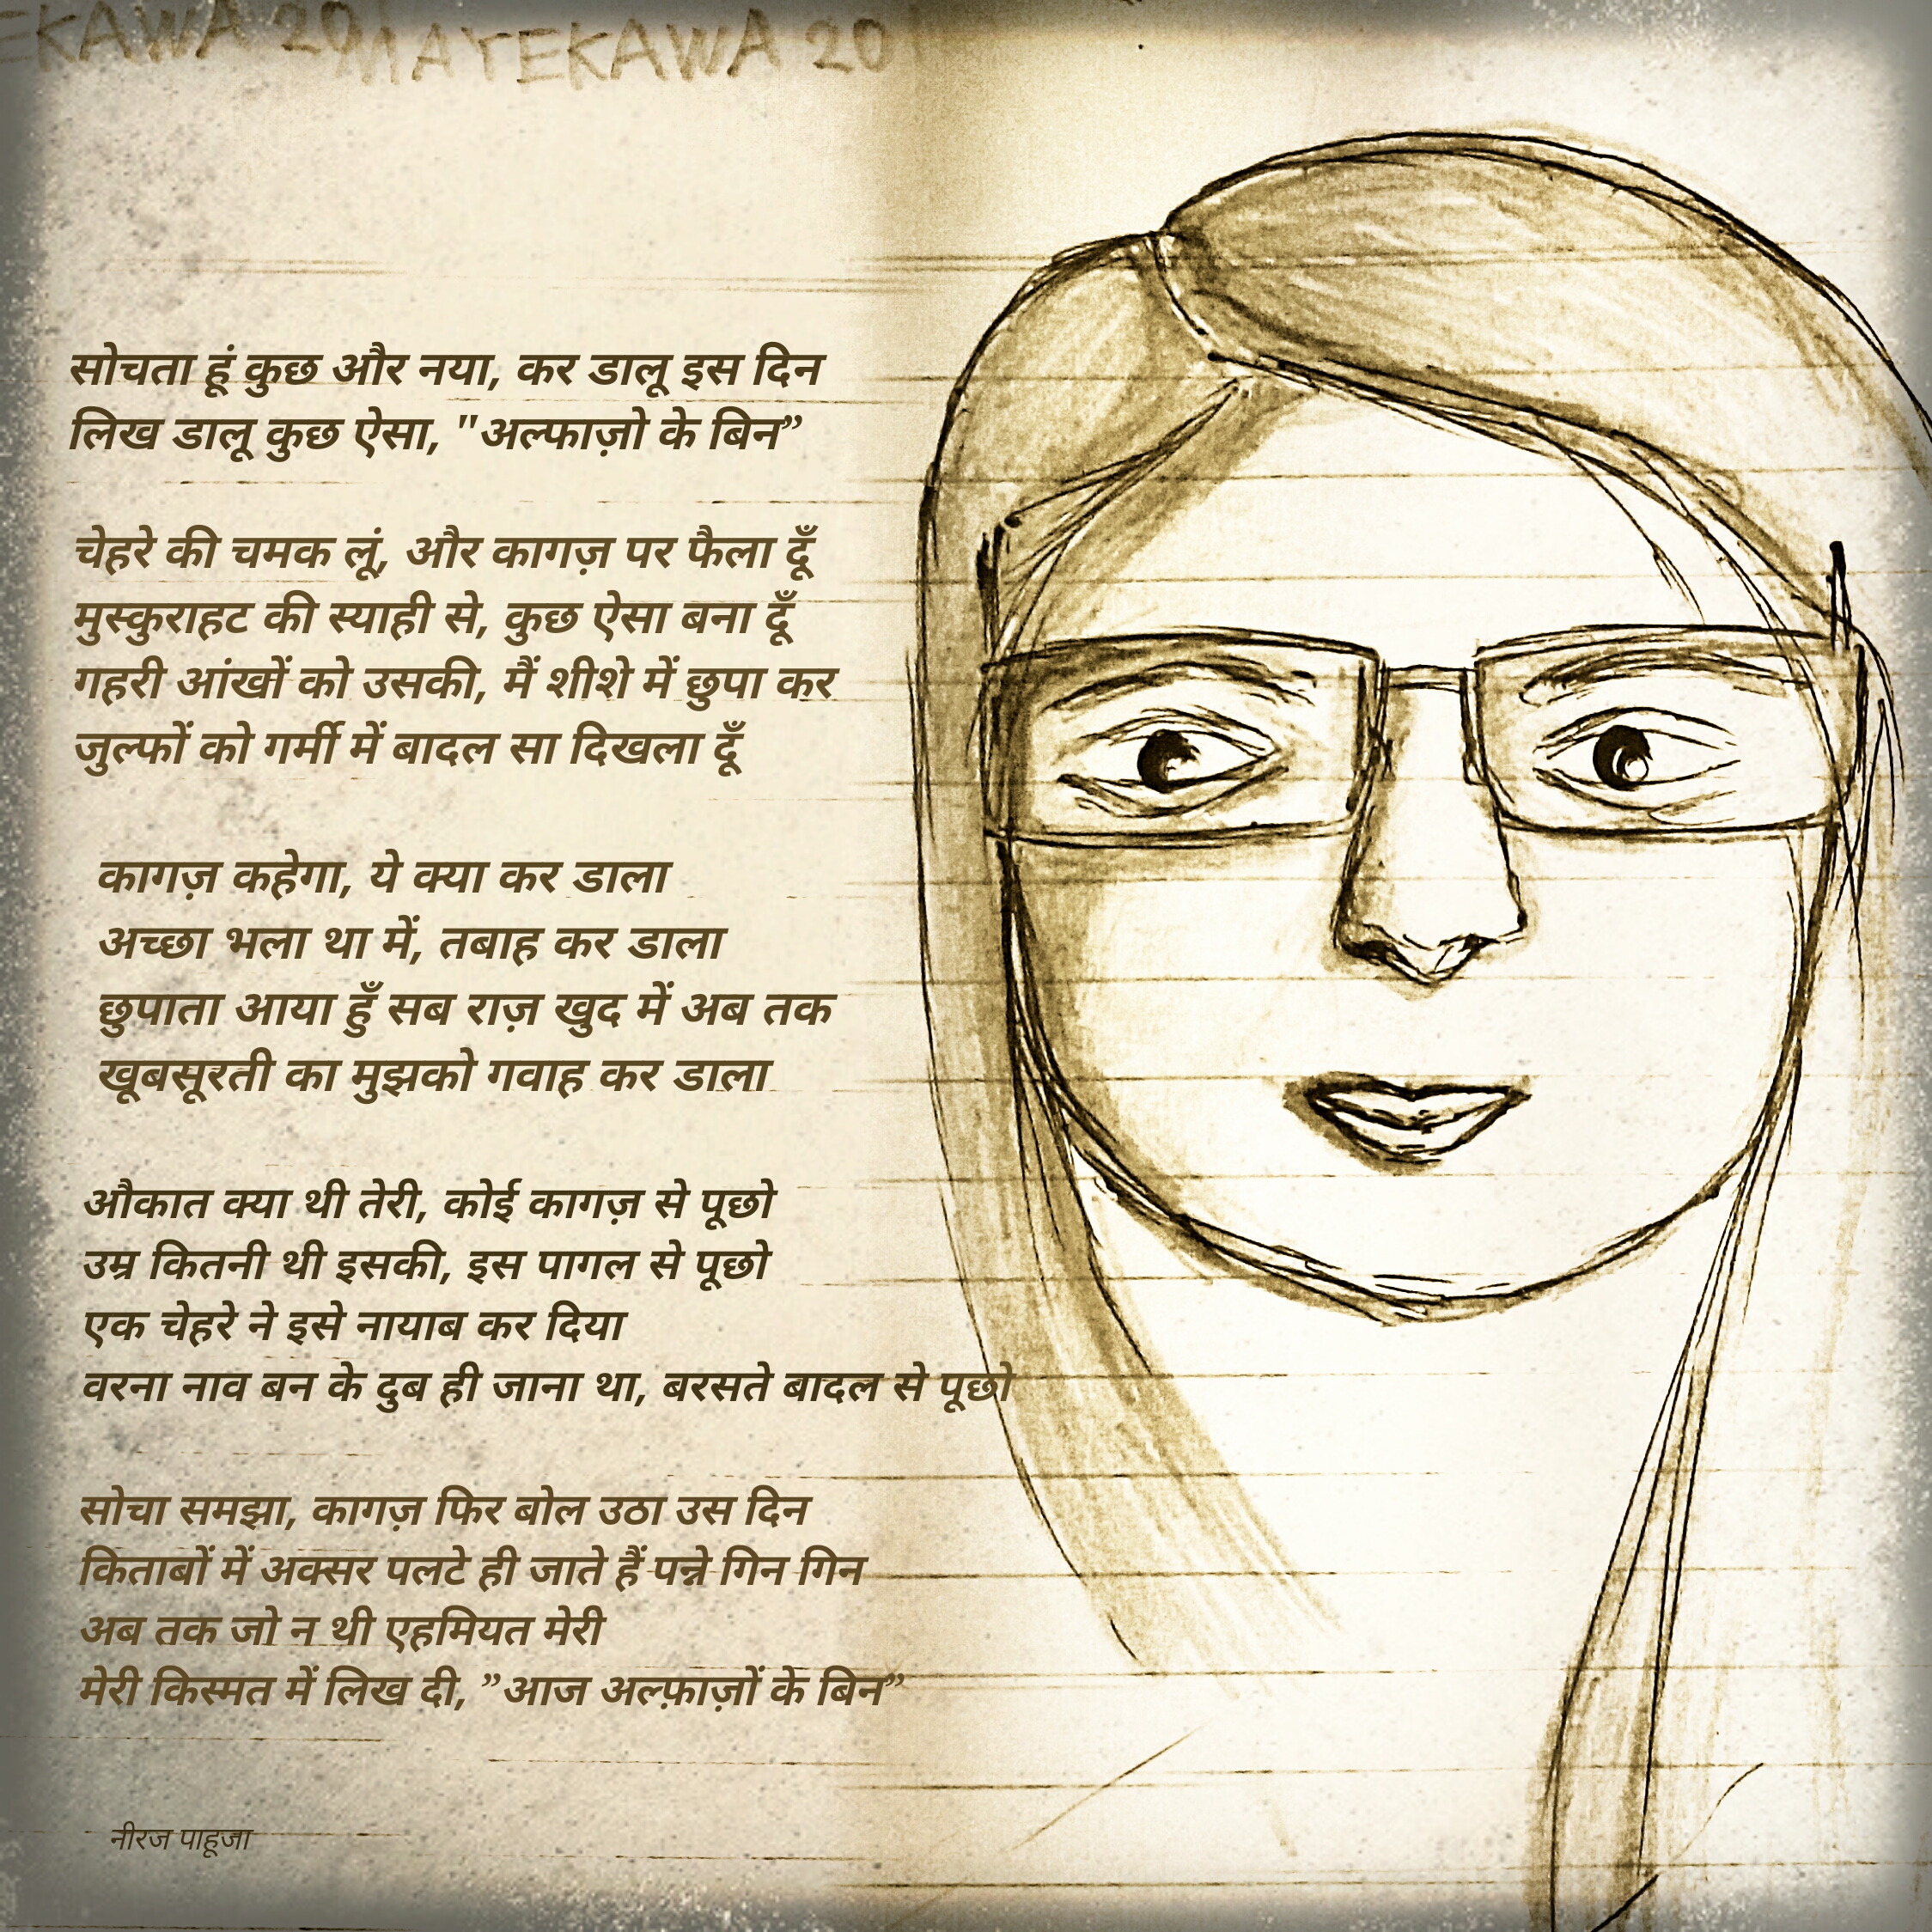 EKAWA 20 MAYEKAWA 20
सोचता हूं कुछ और नया, कर डालू इस दिन
लिख डालू कुछ ऐसा, "अल्फाज़ो के बिन”
चेहरे की चमक लूं, और कागज़ पर फैला दूँ
मुस्कुराहट की स्याही से, कुछ ऐसा बना दूँ
गहरी आंखों को उसकी, मैं शीशे में छुपा कर
जुल्फों को गर्मी में बादल सा दिखला दूँ
कागज़ कहेगा, ये क्या कर डाला
अच्छा भला था में, तबाह कर डाला
छुपाता आया हुँ सब राज़ खुद में अब तक
खूबसूरती का मुझको गवाह कर डाला
औकात क्या थी तेरी, कोई कागज़ से पूछो
उम्र कितनी थी इसकी, इस पागल से पूछो
एक चेहरे ने इसे नायाब कर दिया
वरना नाव बन के दुब ही जाना था, बरसते बादल से पूछो
सोचा समझा, कागज़ फिर बोल उठा उस दिन
किताबों में अक्सर पलटे ही जाते हैं पन्ने गिन गिन
अब तक जो न थी एहमियत मेरी
मेरी किस्मत में लिख दी, ”आज अल्फ़ाज़ों के बिन”
नीरज पाहूजा